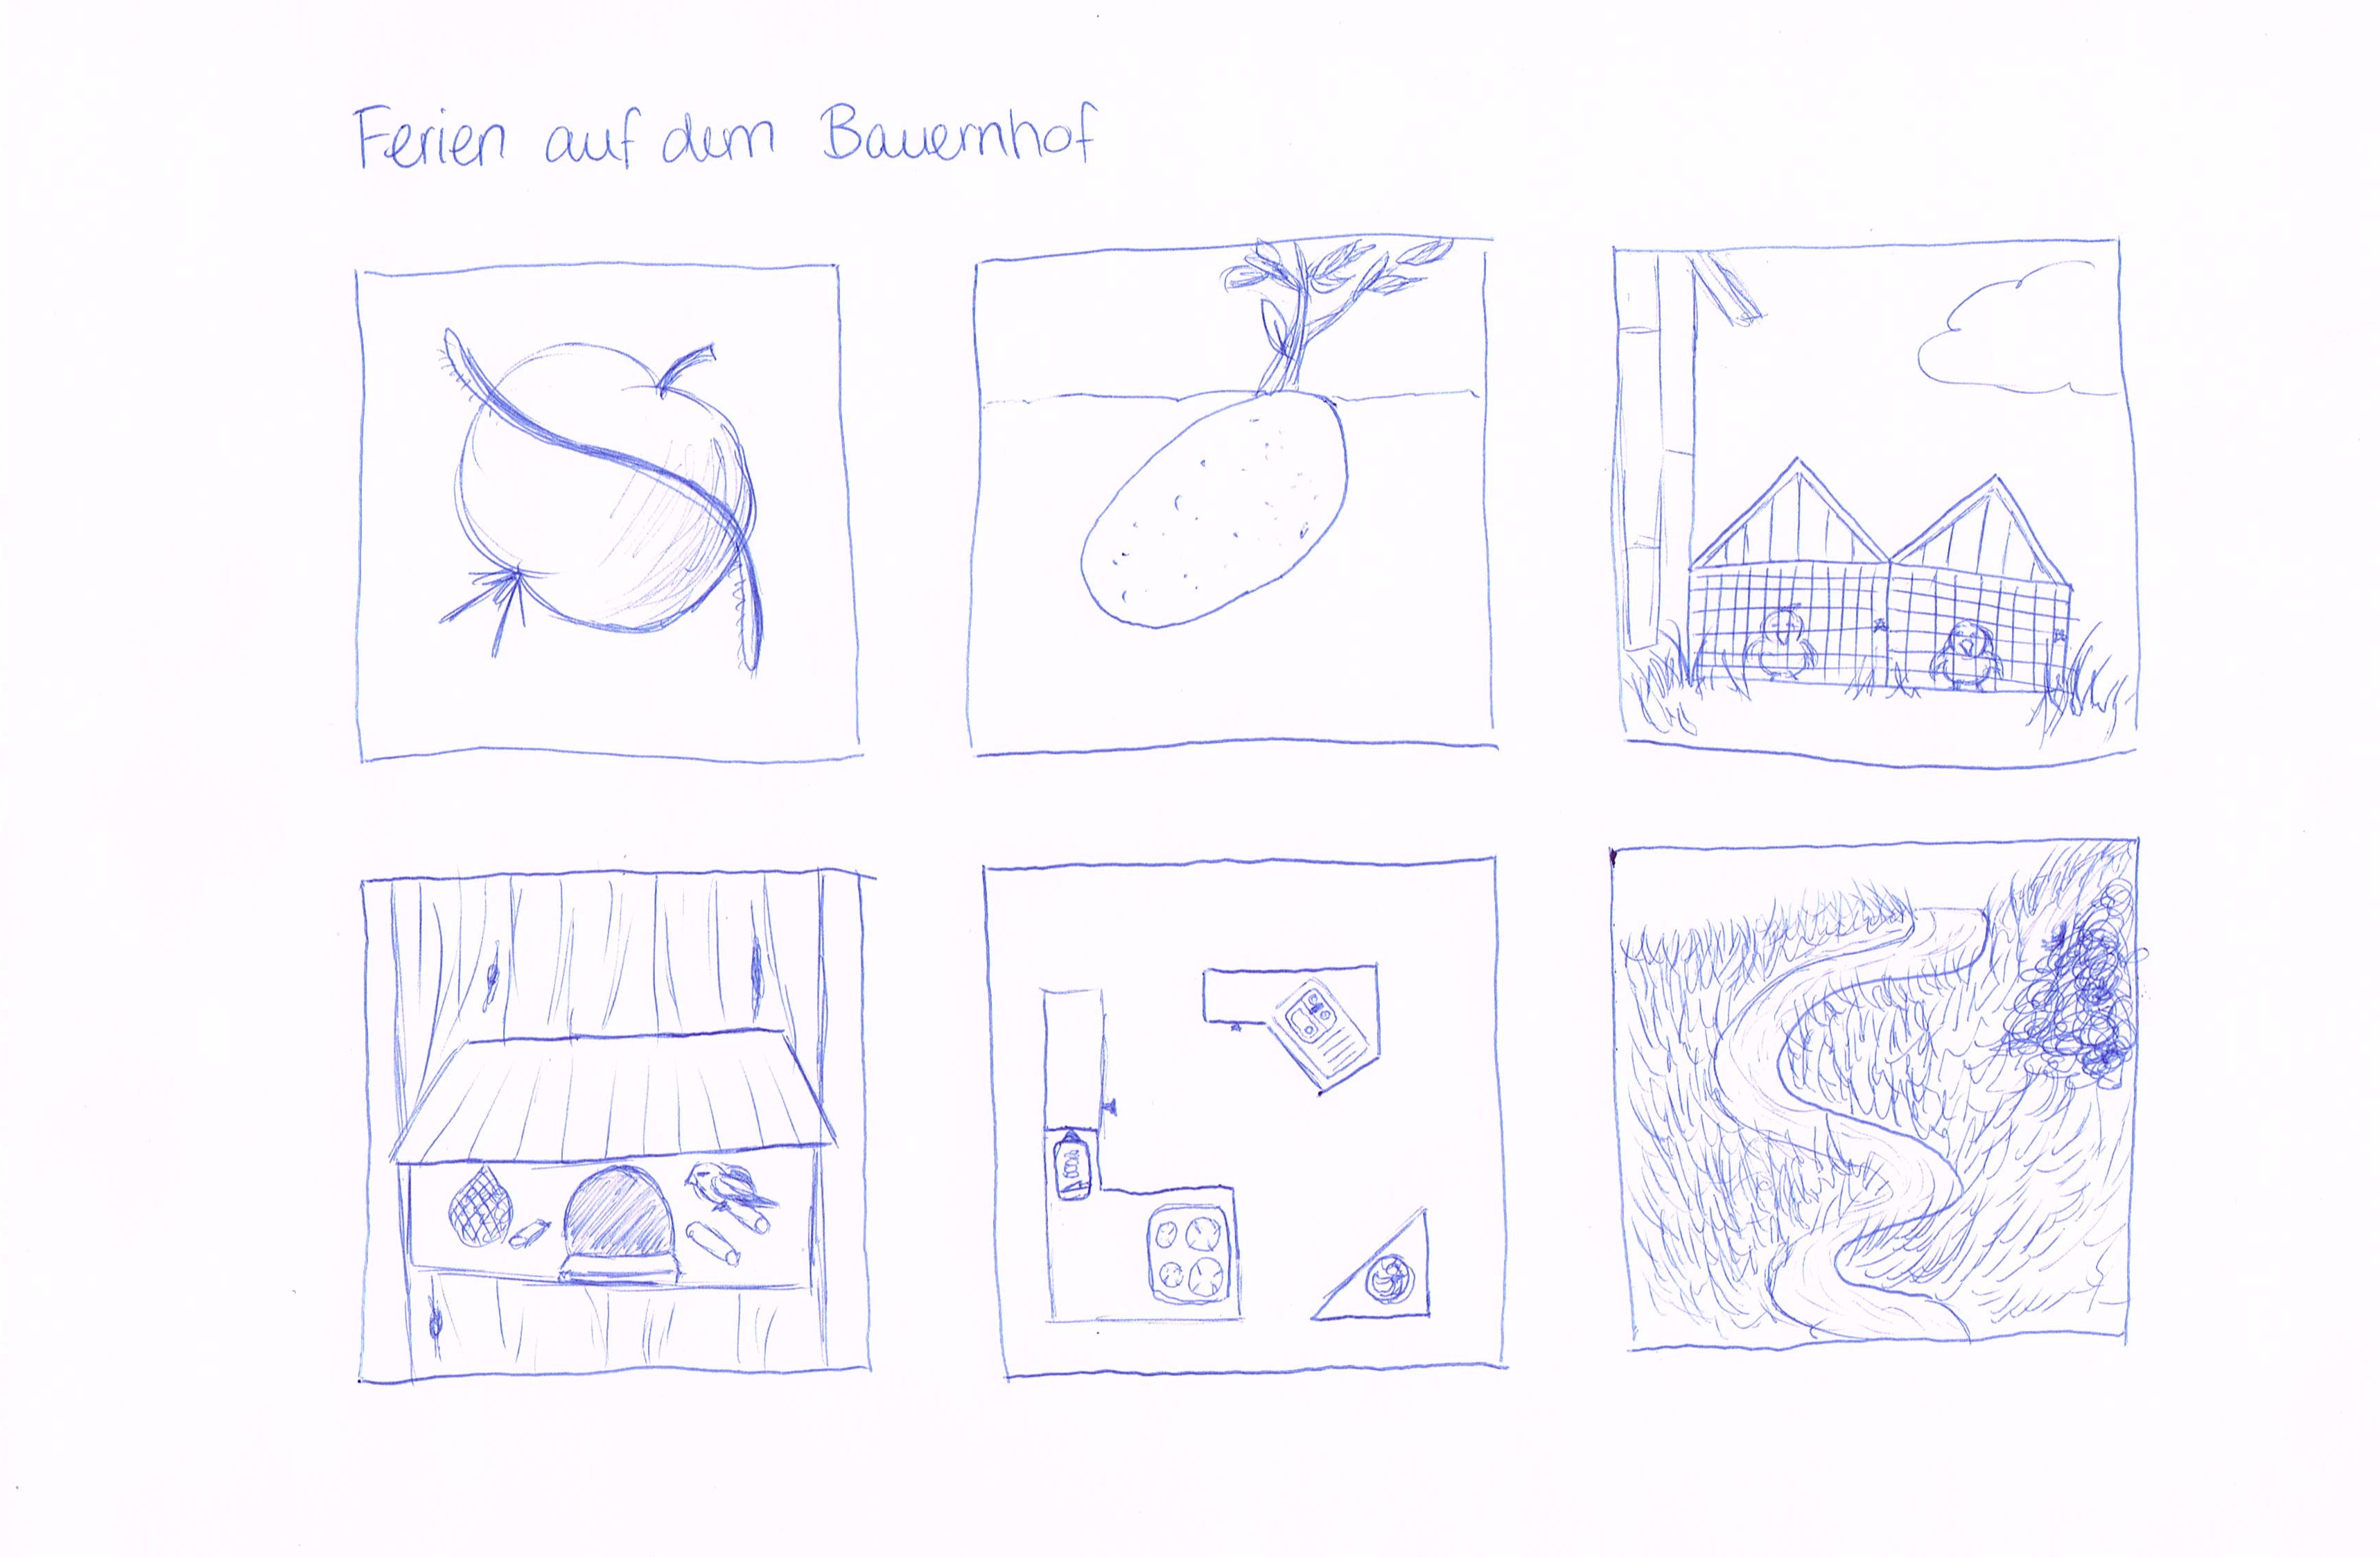 Ferien auf dem Bauernhof